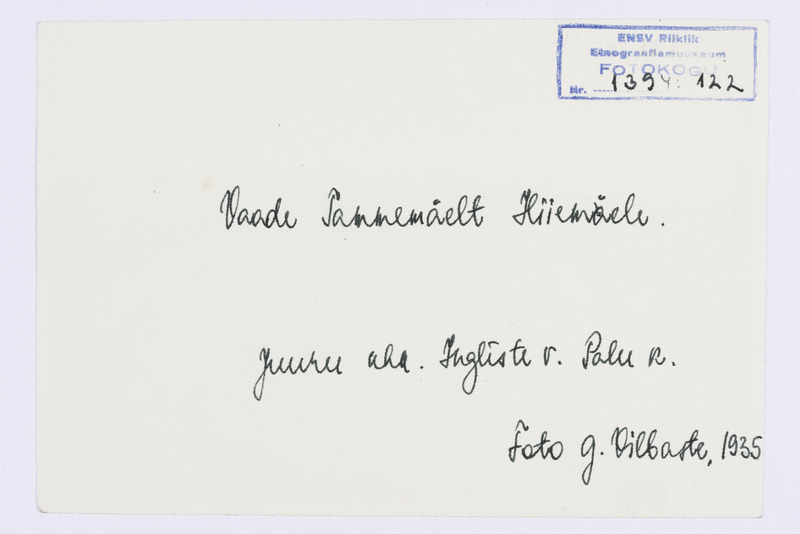 ENSV Riiklik
Etnograafiamuuseum
FOTOKOGU
Nr. 1394: 122
Vaade Tammemäelt Hiiemäele.
Juuru khk. Ingliste v. Palu k.
Foto G. Vilbaste, 1935